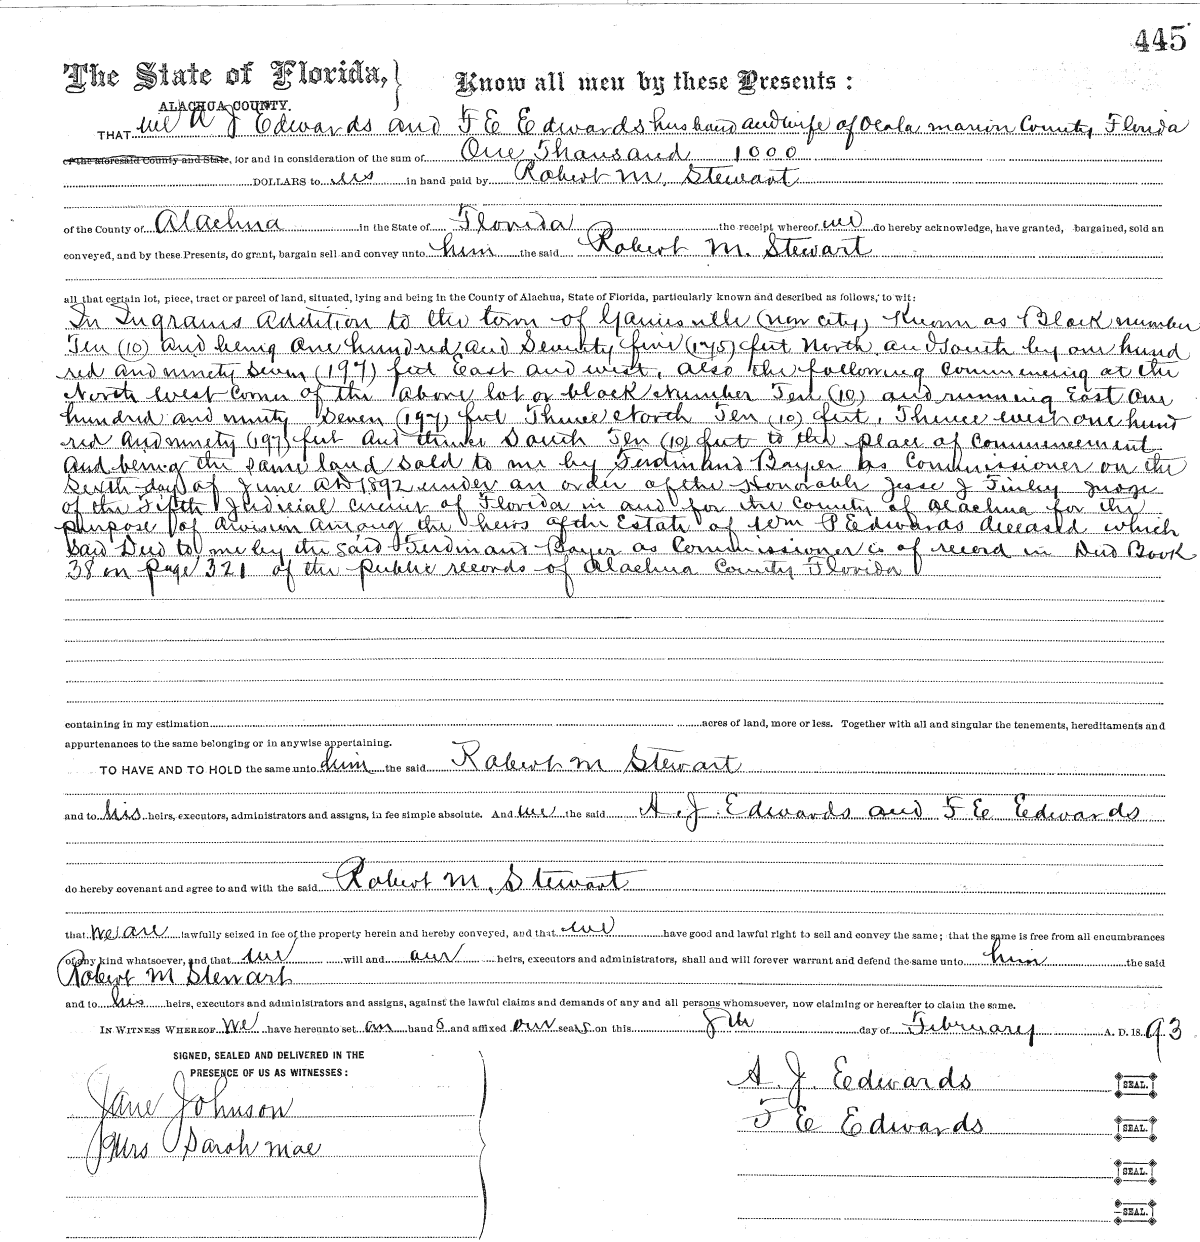 445
The State of Florida, } Know all men by these Presents :
ALACHUA COUNTY.
THAT we A J Edwards and F E Edwards husband and wife of Ocala Marion County Florida
of the aforesaid County and State, for and in consideration of the sum of One Thousand 1000
DOLLARS to us in hand paid by Robert M. Stewart
of the County of Alachua in the State of Florida the receipt whereof we do hereby acknowledge, have granted, bargained, sold an
conveyed, and by these Presents, do grant, bargain sell and convey unto him the said Robert M. Stewart
all that certain lot, piece, tract or parcel of land, situated, lying and being in the County of Alachua, State of Florida, particularly known and described as follows, to wit:
In Ingrams Addition to the town of Gainesville (now city) Known as Block number
Ten (10) and being one hundred and Seventy five (175) feet North and South by one hund
red and ninety Seven (197) feet East and west, also the following commencing at the
North West Corner of the above lot or block Number Ten (10) and running East One
hundred and ninety Seven (197) feet Thence North Ten (10) feet, Thence west one hund
red and ninety (197) feet and thence South Ten (10) feet to the place of Commencement
and being the same land sold to me by Ferdinand Bayer as Commissioner on the
Sixth day of June AD 1892 under an order of the Honorable Jesse J Finley Judge
of the Fifth Judicial Circuit of Florida in and for the County of Alachua for the
purpose of division among the heirs of the Estate of Wm P Edwards deceased which
said Deed to me by the said Ferdinand Bayer as Commissioner is of record in Deed Book
38 on page 321 of the public records of Alachua County Florida
containing in my estimation acres of land, more or less. Together with all and singular the tenements, hereditaments and
appurtenances to the same belonging or in anywise appertaining.
TO HAVE AND TO HOLD the same unto him the said Robert M Stewart
and to his heirs, executors, administrators and assigns, in fee simple absolute. And we the said A. J. Edwards and F E Edwards
do hereby covenant and agree to and with the said Robert M. Stewart
that we are lawfully seized in fee of the property herein and hereby conveyed, and that we have good and lawful right to sell and convey the same; that the same is free from all encumbrances
of any kind whatsoever, and that we will and our heirs, executors and administrators, shall and will forever warrant and defend the same unto him the said
Robert M Stewart
and to his heirs, executors and administrators and assigns, against the lawful claims and demands of any and all persons whomsoever, now claiming or hereafter to claim the same.
IN WITNESS WHEREOF We have hereunto set our hands and affixed our seals on this 8th day of February A. D. 1893
SIGNED, SEALED AND DELIVERED IN THE
PRESENCE OF US AS WITNESSES :
Jane Johnson
Mrs Sarah Mae
A. J. Edwards SEAL.
F E Edwards SEAL.
SEAL.
SEAL.